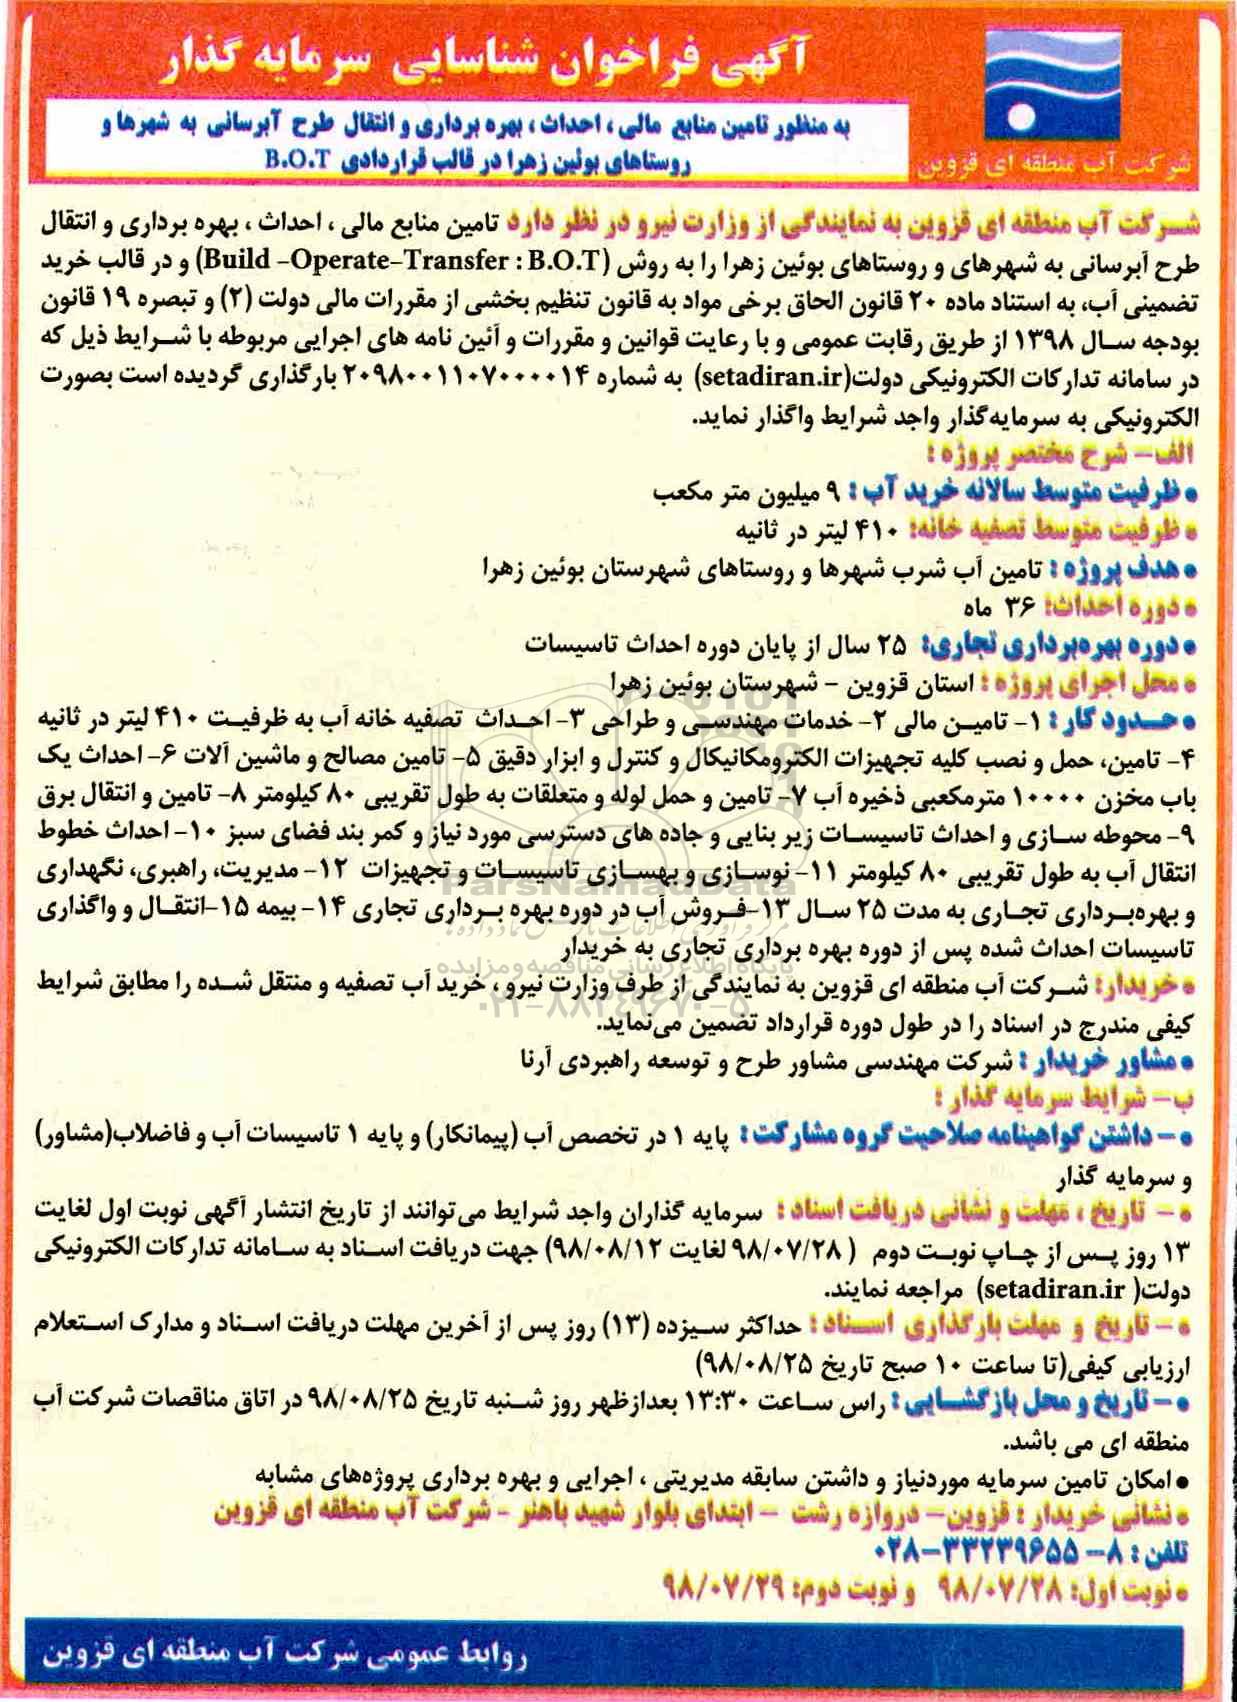 آگهی فراخوان شناسایی سرمایه گذار
به منظور تامین منابع مالی ، احداث ، بهره برداری و انتقال طرح آبرسانی به شهرها و
روستاهای بوئین زهرا در قالب قراردادی B.O.T
شرکت آب منطقه ای قزوین
شرکت آب منطقه ای قزوین به نمایندگی از وزارت نیرو در نظر دارد تامین منابع مالی ، احداث ، بهره برداری و انتقال
طرح آبرسانی به شهرهای و روستاهای بوئین زهرا را به روش (Build –Operate–Transfer : B.O.T) و در قالب خرید
تضمینی آب، به استناد ماده ۲۰ قانون الحاق برخی مواد به قانون تنظیم بخشی از مقررات مالی دولت (۲) و تبصره ۱۹ قانون
بودجه سال ۱۳۹۸ از طریق رقابت عمومی و با رعایت قوانین و مقررات و آئین نامه های اجرایی مربوطه با شرایط ذیل که
در سامانه تدارکات الکترونیکی دولت(setadiran.ir) به شماره ۲۰۹۸۰۰۱۱۰۷۰۰۰۰۱۴ بارگذاری گردیده است بصورت
الکترونیکی به سرمایه‌گذار واجد شرایط واگذار نماید.
الف– شرح مختصر پروژه :
● ظرفیت متوسط سالانه خرید آب : ۹ میلیون متر مکعب
● ظرفیت متوسط تصفیه خانه: ۴۱۰ لیتر در ثانیه
● هدف پروژه : تامین آب شرب شهرها و روستاهای شهرستان بوئین زهرا
● دوره احداث: ۳۶ ماه
● دوره بهره‌برداری تجاری: ۲۵ سال از پایان دوره احداث تاسیسات
● محل اجرای پروژه : استان قزوین – شهرستان بوئین زهرا
● حدود کار : ۱– تامین مالی ۲– خدمات مهندسی و طراحی ۳– احداث تصفیه خانه آب به ظرفیت ۴۱۰ لیتر در ثانیه
۴– تامین، حمل و نصب کلیه تجهیزات الکترومکانیکال و کنترل و ابزار دقیق ۵– تامین مصالح و ماشین آلات ۶– احداث یک
باب مخزن ۱۰۰۰۰ مترمکعبی ذخیره آب ۷– تامین و حمل لوله و متعلقات به طول تقریبی ۸۰ کیلومتر ۸– تامین و انتقال برق
۹– محوطه سازی و احداث تاسیسات زیر بنایی و جاده های دسترسی مورد نیاز و کمر بند فضای سبز ۱۰– احداث خطوط
انتقال آب به طول تقریبی ۸۰ کیلومتر ۱۱– نوسازی و بهسازی تاسیسات و تجهیزات ۱۲– مدیریت، راهبری، نگهداری
و بهره‌برداری تجاری به مدت ۲۵ سال ۱۳–فروش آب در دوره بهره برداری تجاری ۱۴– بیمه ۱۵–انتقال و واگذاری
تاسیسات احداث شده پس از دوره بهره برداری تجاری به خریدار
● خریدار: شرکت آب منطقه ای قزوین به نمایندگی از طرف وزارت نیرو ، خرید آب تصفیه و منتقل شده را مطابق شرایط
کیفی مندرج در اسناد را در طول دوره قرارداد تضمین می‌نماید.
● مشاور خریدار : شرکت مهندسی مشاور طرح و توسعه راهبردی آرنا
ب– شرایط سرمایه گذار :
● – داشتن گواهینامه صلاحیت گروه مشارکت : پایه ۱ در تخصص آب (پیمانکار) و پایه ۱ تاسیسات آب و فاضلاب(مشاور)
و سرمایه گذار
● – تاریخ ، مهلت و نشانی دریافت اسناد : سرمایه گذاران واجد شرایط می‌توانند از تاریخ انتشار آگهی نوبت اول لغایت
۱۳ روز پس از چاپ نوبت دوم ( ۹۸/۰۷/۲۸ لغایت ۹۸/۰۸/۱۲) جهت دریافت اسناد به سامانه تدارکات الکترونیکی
دولت( setadiran.ir) مراجعه نمایند.
● – تاریخ و مهلت بارگذاری اسناد : حداکثر سیزده (۱۳) روز پس از آخرین مهلت دریافت اسناد و مدارک استعلام
ارزیابی کیفی(تا ساعت ۱۰ صبح تاریخ ۹۸/۰۸/۲۵)
● – تاریخ و محل بازگشایی : راس ساعت ۱۳:۳۰ بعدازظهر روز شنبه تاریخ ۹۸/۰۸/۲۵ در اتاق مناقصات شرکت آب
منطقه ای می باشد.
● امکان تامین سرمایه موردنیاز و داشتن سابقه مدیریتی ، اجرایی و بهره برداری پروژه‌های مشابه
● نشانی خریدار : قزوین– دروازه رشت – ابتدای بلوار شهید باهنر - شرکت آب منطقه ای قزوین
تلفن : ۸– ۳۳۲۳۹۶۵۵–۰۲۸
● نوبت اول: ۹۸/۰۷/۲۸ و نوبت دوم: ۹۸/۰۷/۲۹
روابط عمومی شرکت آب منطقه ای قزوین
ParsNamadData
پایگاه اطلاع رسانی مناقصه و مزایده
۰۲۱–۸۸۳۴۹۶۷۰–۵